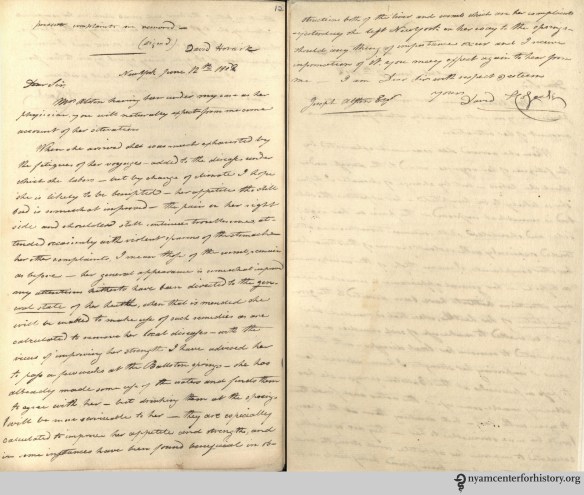 12
present complaints are removed —
(signed) David Hosack
New York June 12th 1808
Dear Sir,
Mrs Alston having been under my care as her
physician you will naturally expect from me some
account of her situation
When she arrived she was much exhausted by
the fatigues of her voyage — added to the disease under
which she labors — but by change of climate I hope
she is likely to be benefited — her appetite tho still
bad is somewhat improved — the pain in her right
side and shoulder still continues troublesome at-
tended occasionally with violent spasms of the stomach —
her other complaints I mean those of the womb, remain
as before — her general appearance is somewhat improved
my attention hitherto have been devoted to the gen-
eral state of her health, when that is mended she
will be enabled to make use of such remedies as are
calculated to remove her local disease — with the
views of improving her strength I have advised her
to pass a few weeks at the Ballston springs — she has
already made some use of the waters and finds them
to agree with her — but drinking them at the springs
will be more serviceable to her — they are especially
calculated to improve her appetite and strength, and
in some instances have been found beneficial in ob-
structions both of the liver and womb which are her complaints
yesterday she left New York on her way to the springs —
should any thing of importance occur and I receive
information of it you may expect again to hear from
me I am Dear Sir with respect & esteem
yours
Joseph Alston Esqr David Hosack
nyamcenterforhistory.org